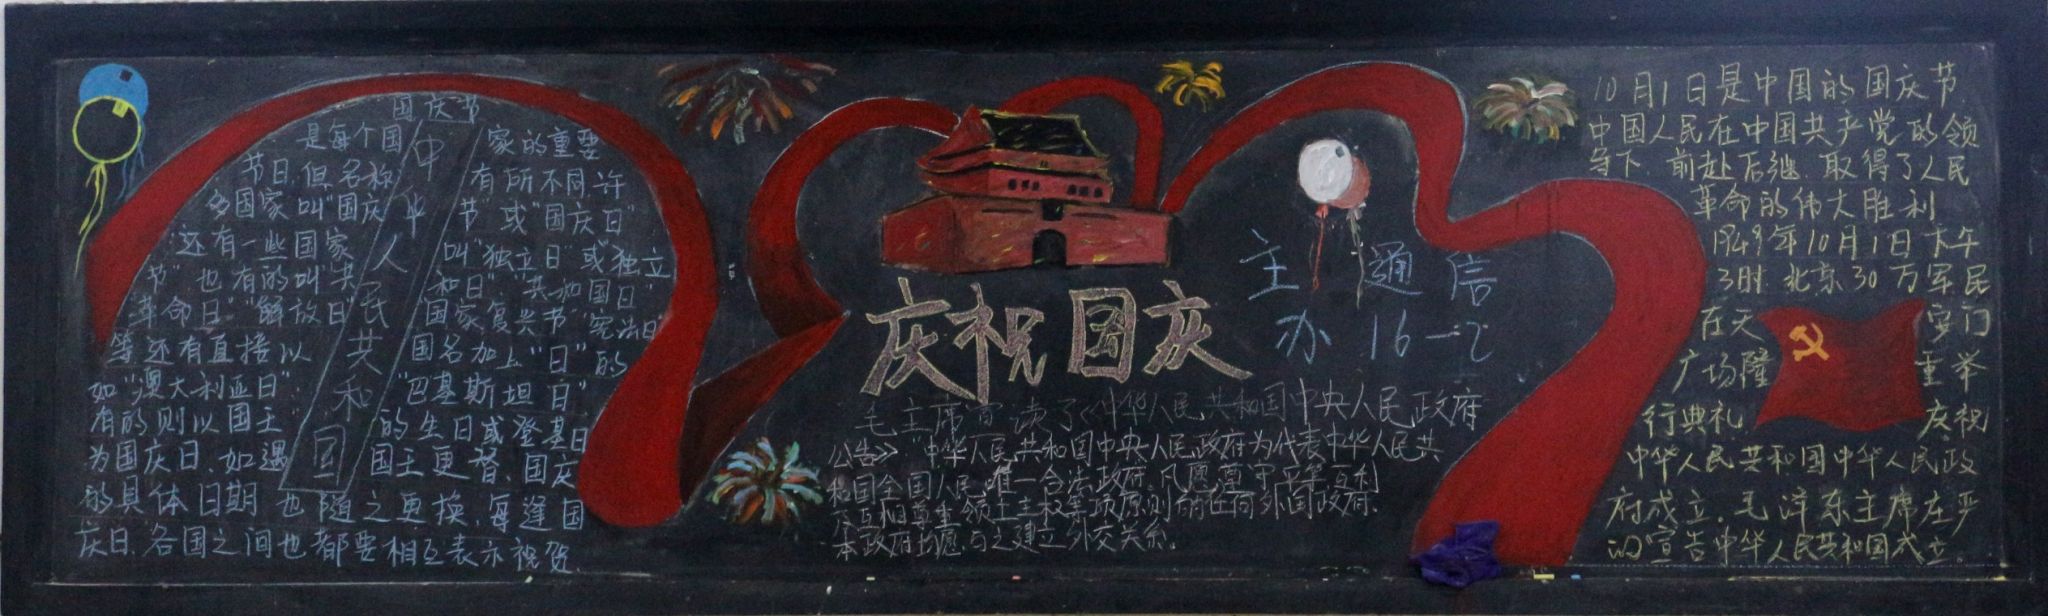 国庆节
是每个国 家的重要
节日,但名称 有所不同,许
多国家叫"国庆 节"或"国庆日"
还有一些国家 叫"独立日"或"独立
节"也有的叫"共 和日""共和国日"
"革命日""解放日" 国家复兴节""宪法日"
等还有直接以 国名加上"日"的
如"澳大利亚日", "巴基斯坦日"
有的则以国王 的生日或登基日
为国庆日.如遇 国王更替,国庆
的具体日期也随之更换.每逢国
庆日.各国之间也都要相互表示祝贺.
中华人民共和国
庆祝国庆
主办 通信16-2
毛主席宣读了《中华人民共和国中央人民政府
公告》"中华人民共和国中央人民政府为代表中华人民共
和国全国人民唯一合法政府.凡愿遵守平等互利
及互相尊重领土主权等项原则的任何外国政府.
本政府均愿与之建立外交关系。
10月1日是中国的国庆节
中国人民在中国共产党的领
导下.前赴后继.取得了人民
革命的伟大胜利
1949年10月1日下午
3时.北京30万军民
在天 安门
广场隆 重举
行典礼 庆祝
中华人民共和国中华人民政
府成立.毛泽东主席在严
的宣告中华人民共和国成立.